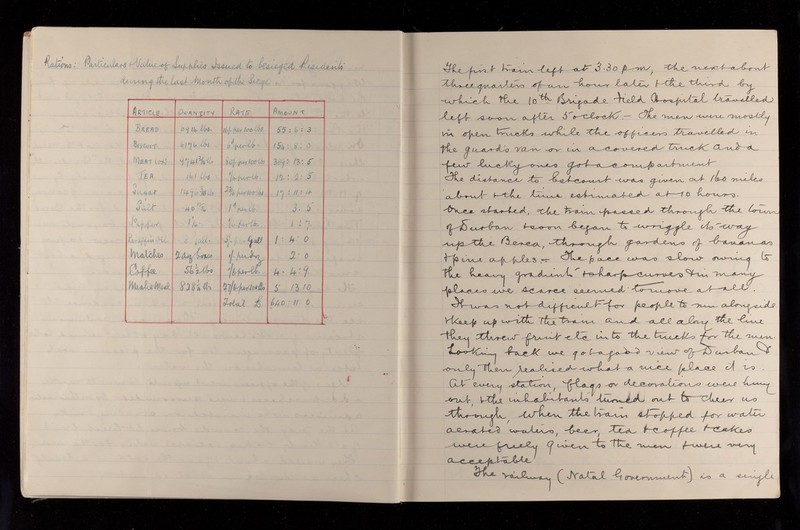 Rations: Particulars & Value of Supplies Issued to besieged Residents
during the last month of the Siege
ARTICLE QUANTITY RATE AMOUNT
BREAD lbs. per 100 lbs 55 : 6 : 3
Biscuit lbs per lb.
MEAT lbs per 100 lbs : 13 : 5
TEA lbs per lb. : 2 : 5
Sugar lbs per 100 lbs 17 :
Salt 1d per lb. 3 . 5
Pepper per lb. 1 : 7
Paraffin Oil Gall 1 : 4 : 0
Matches 2 doz boxes per doz 2 : 0
Coffee lbs per lb. 4 . 4 . 9
Mealie Meal 828½ lbs per 100 lbs 5 . 13 . 10
Total £ 640 : 11 . 0
The first train left at 3.30 p.m, the next about
three quarters of an hour later & the third by
which the 10th Brigade Field Hospital travelled
left soon after 5 o'clock — The men were mostly
in open trucks while the officers travelled in
the guard's van or in a covered truck and a
few lucky ones got a compartment
The distance to Estcourt was given at 160 miles
about & the time estimated at 10 hours.
Once started, the train passed through the town
of Durban & soon began to wriggle its way
up the Berea, through gardens of bananas
& pine apples — The pace was slow owing to
the heavy gradients & sharp curves & in many
places we scarce seemed to move at all.
It was not difficult for people to run alongside
& keep up with the train and all along the line
they threw fruit etc into the trucks for the men
Looking back we got a good view of Durban &
only then realised what a nice place it is.
At every station, flags or decorations were hung
out, & the inhabitants turned out to cheer us
through, when the train stopped for water
aerated waters, beer, tea & coffee & cakes
were freely given to the men & were very
acceptable
The railway (Natal Government) is a single